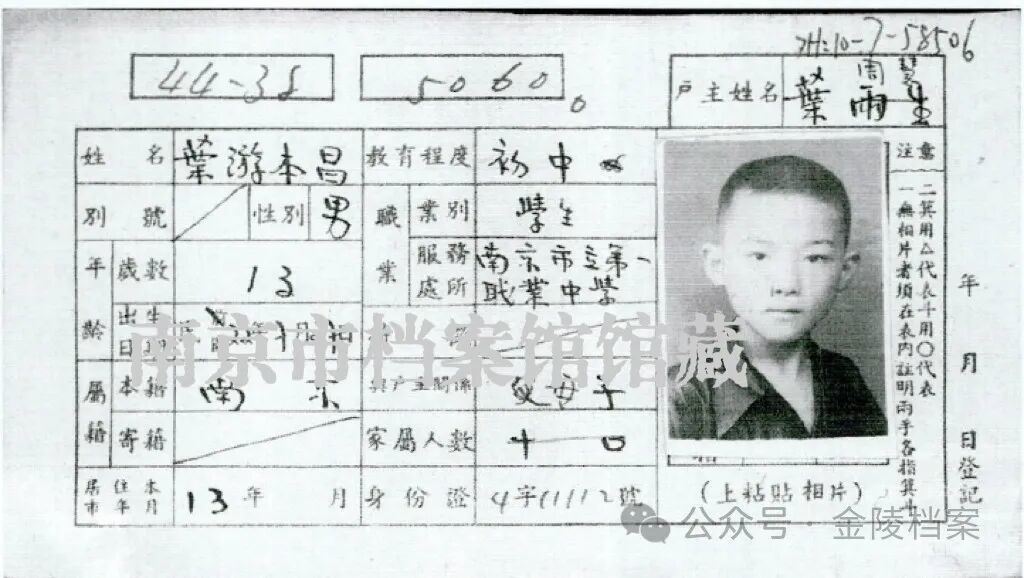 7H:10-7-58506
44-38
5060。
戶主姓名
葉雨生
姓名 葉游本昌 教育程度 初中
別號 性別 男 職業 業別 學生
年齡 歲數 13 服務處所 南京市立第一職業中學
出生日期
屬籍 本籍 南京 與戶主關係
寄籍 家屬人數 十口
居住本市年月 13年 月 身份證 4字11112號
(上粘貼相片)
注意
一無相片者須在表內註明兩手各指箕斗
二箕用△代表斗用○代表
年 月 日登記
南京市档案馆馆藏
公众号·金陵档案